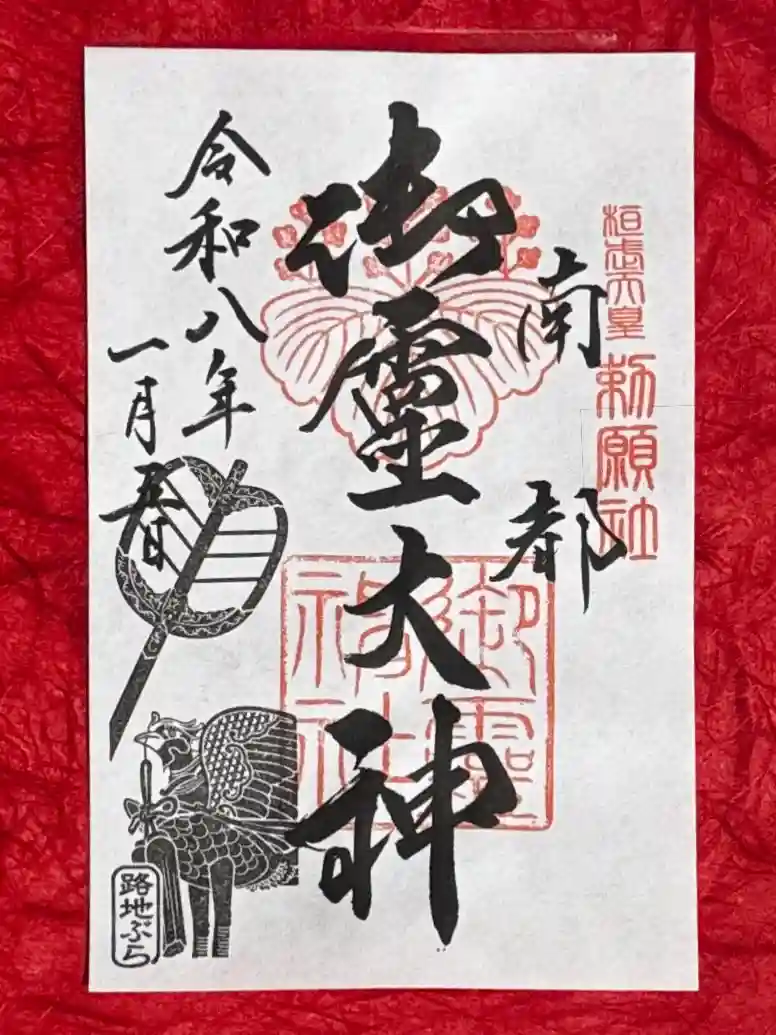 桓武天皇
勅願社
南都
御霊大神
御霊
神社
令和八年
一月五日
路地ぶら